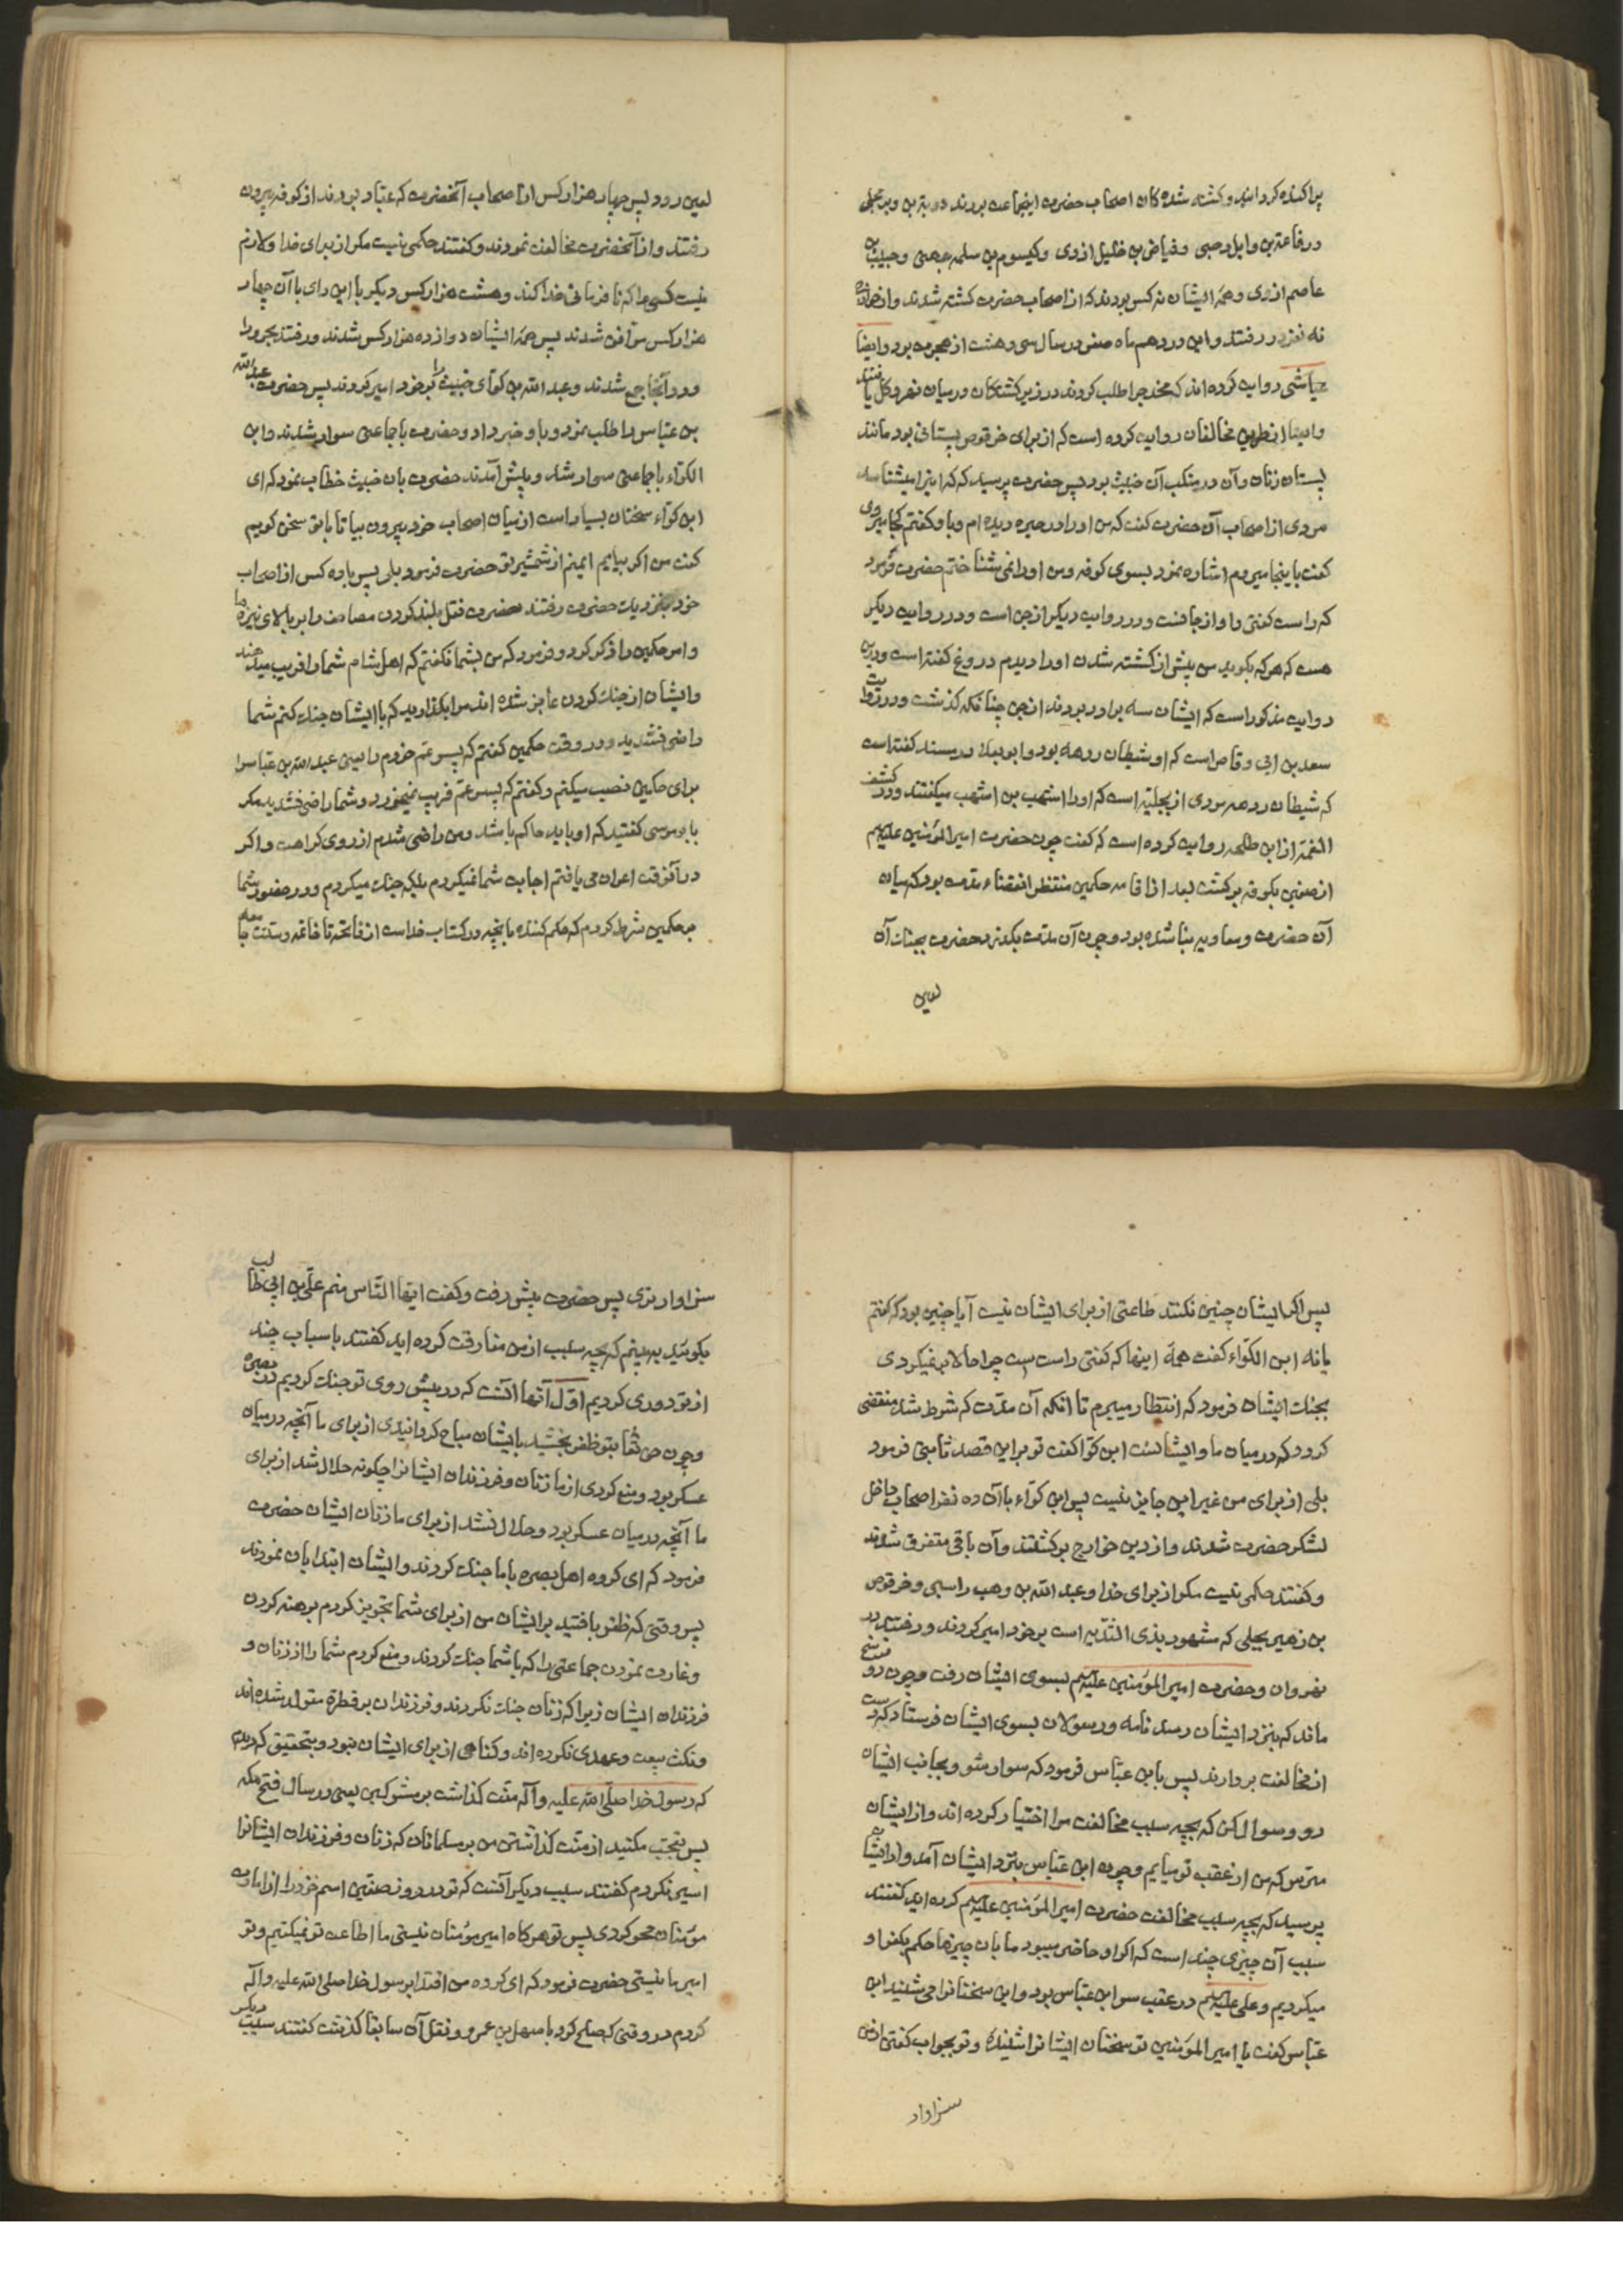 پراکنده کردانید و کشته شده کان اصحاب حضرت اینجماعت بودند دوبتر بن وبر بجلی
ورفاعة بن وایل رحبی وفیاض بن خلیل ازدی وکیسوم بن سلمه جهنی وحبیب بن
عاصم ازدی وهمه ایشان نه کس بودند که از اصحاب حضرت کشته شدند واز خوارج
نه نفر در رفتند واین در دهم ماه صفر در سال سی وهشت از هجرت بود وایضا
عیاشی روایت کرده اند که مخدج را طلب کردند در زیر کشتکان در میان نهر وکل یافتند
وایضا از طریق مخالفان روایت کرده است که از برای حرقوص پستانی بود مانند
پستان زنان وآن در منکب آن خبیث بود پس حضرت پرسید که که این را میشناسد
مردی از اصحاب آن حضرت کفت که من او را در حیره دیده ام وباو کفتم کجا میروی
کفت باینجا میروم اشاره نمود بسوی کوفه ومن او را نمی شناختم حضرت فرمود
که راست کفتی واو از جانست ودر روایت دیکر از جن است ودر روایت دیکر
هست که هر که بکوید من پیش از کشته شدن او را دیدم دروغ کفته است ودرین
روایت مذکور است که ایشان سه برادر بودند از جن چنانکه کذشت ودر روایت
سعد بن ابی وقاص است که او شیطان ردهه بود وابو یعلا در مسند کفته است
که شیطان ردهه مردی از بجلیه است که او را اشهب بن اشهب میکفتند ودر کشف
الغمه از ابن طلحه روایت کرده است که کفت چون حضرت امیر المؤمنین علیهم
از صفین بکوفه برکشت بعد از اقامه حکمین منتظر انقضاء مدت بود که میان
آن حضرت ومعاویه بنا شده بود وچون آن مدت بکذرد حضرت بجنک آن
لعین
لعین رود پس چهار هزار کس از اصحاب آنحضرت که عباد بودند از کوفه بیرون
رفتند واز آنحضرت مخالفت نمودند وکفتند حکمی نیست مکر از برای خدا ولازم
نیست کسی را که نافرمانی خدا کند وهشت هزار کس دیکر با این رای با آن چهار
هزار کس موافق شدند پس همه ایشان دوازده هزار کس شدند ورفتند بحرورا
ودر آنجا جمع شدند وعبد الله بن کوای خبیث را بر خود امیر کردند پس حضرت عبد الله
بن عباس را طلب نمود وباو خبر داد وحضرت با جماعتی سوار شدند وابن
الکواء با جماعتی سوار شد وپیش آمدند حضرت بان خبیث خطاب نمود که ای
ابن کواء سخنان بسیار است از میان اصحاب خود بیرون بیا تا با تو سخن کویم
کفت من اکر بیایم ایمنم از شمشیر تو حضرت فرمود بلی پس با ده کس از اصحاب
خود بنزدیک حضرت رفتند حضرت قتل بلند کردن مصاحف را بر بالای نیزه ها
وامر حکمین را ذکر کرد وفرمود که من بشما نکفتم که اهل شام شما را فریب میدهند
وایشان از جنک کردن عاجز شده اند مرا بکذارید که با ایشان جنک کنم شما
راضی نشدید ودر وقت حکمین کفتم که پسر عم خودم را یعنی عبد الله بن عباس را
برای حکمین نصب میکنم وکفتم که پسر عم فریب نمیخورد وشما راضی نشدید مکر
بابو موسی کفتید که او باید حاکم باشد ومن راضی شدم از روی کراهت واکر
در آنوقت اعوان می یافتم اجابت شما نمیکردم بلکه جنک میکردم ودر حضور شما
بر حکمین شرط کردم که حکم کننده بانچه در کتاب خداست از فاتحه تا خاتمه وسنت جامعه
پس اکر ایشان چنین نکنند طاعتی از برای ایشان نیست آیا چنین بود که کفتم
یا نه ابن الکواء کفت همه اینها که کفتی راست است چرا حالا بر نمیکردی
بجنک ایشان فرمود که انتظار میبرم تا انکه آن مدت که شرط شد منقضی
کردد که در میان ما وایشانست ابن کوا کفت تو بر این قصد ثابتی فرمود
بلی از برای من غیر این جایز نیست پس ابن کواء با آن ده نفر اصحاب داخل
لشکر حضرت شدند واز دین خوارج برکشتند وآن باقی متفرق شدند
وکفتند حکمی نیست مکر از برای خدا وعبد الله بن وهب راسبی وحرقوص
بن زهیر بجلی که مشهور بذی الثدیه است بر خود امیر کردند ورفتند در
نهروان وحضرت امیر المؤمنین علیهم بسوی ایشان رفت وچون دو فرسخ
ماند که بنزد ایشان رسد نامه ورسولان بسوی ایشان فرستاد که دست
از مخالفت بردارند پس بابن عباس فرمود که سوار شو وبجانب ایشان
رو وسوال کن که بچه سبب مخالفت مرا اختیار کرده اند واز ایشان
مترس که من از عقب تو میایم وچون ابن عباس بنزد ایشان آمد واز ایشان
پرسید که بچه سبب مخالفت حضرت امیر المؤمنین علیهم کرده اید کفتند
سبب آن چیزی چند است که اکر او حاضر میبود ما بان چیزها حکم بکفر او
میکردیم وعلی علیهم در عقب سر ابن عباس بود واین سخنانرا می شنید ابن
عباس کفت یا امیر المؤمنین تو سخنان ایشانرا شنیدی وتو بجواب کفتن از من
سزاوار
سزاوار تری پس حضرت پیش رفت وکفت ایها الناس منم علی بن ابی طالب
بکوئید به بینم که بچه سبب از من مفارقت کرده اید کفتند باسباب چند
از تو دوری کردیم اول آنها آنست که در پیش روی تو جنک کردیم در بصره
وچون حق تعا بتو ظفر بخشید بایشان مباح کردانیدی از برای ما آنچه در میان
عسکر بود ومنع کردی از ما زنان وفرزندان ایشانرا چکونه حلال شد از برای
ما آنچه در میان عسکر بود وحلال نشد از برای ما زنان ایشان حضرت
فرمود که ای کروه اهل بصره با ما جنک کردند وایشان ابتدا بان نمودند
پس وقتی که ظفر یافتید بر ایشان من از برای شما تجویز کردم برهنه کردن
وغارت نمودن جماعتی را که با شما جنک کردند ومنع کردم شما را از زنان و
فرزندان ایشان زیرا که زنان جنک نکردند وفرزندان بر فطرة متولد شده اند
ونکث بیعت وعهدی نکرده اند وکناهی از برای ایشان نبود وبتحقیق که دیدم
که رسول خدا صلی الله علیه وآله منت کذاشت بر مشرکین یعنی در سال فتح مکه
پس تعجب مکنید از منت کذاشتن من بر مسلمانان که زنان وفرزندان ایشانرا
اسیر نکردم کفتند سبب دیکر آنست که تو در روز صفین اسم خود را از امارت
مؤمنان محو کردی پس تو هر کاه امیر مؤمنان نیستی ما اطاعت تو نمیکنیم وتو
امیر ما نیستی حضرت فرمود که ای کروه من اقتدا بر رسول خدا صلی الله علیه وآله
کردم در وقتی که صلح کرد با سهل بن عمرو ونقل آن سابقا کذشت کفتند سبب دیکر